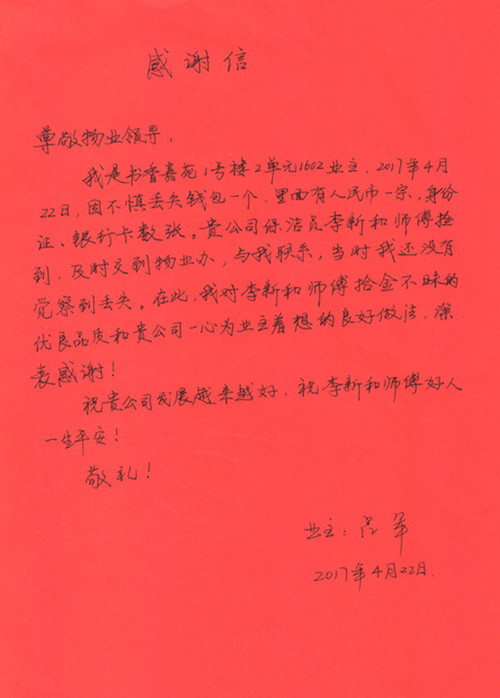 感谢信
尊敬物业领导:
我是书香嘉苑1号楼2单元1602业主,2017年4月
22日,因不慎丢失钱包一个.里面有人民币一宗,身份
证、银行卡数张。贵公司保洁员李新和师傅捡
到,及时交到物业办,与我联系,当时我还没有
觉察到丢失。在此,我对李新和师傅拾金不昧的
优良品质和贵公司一心为业主着想的良好做法,深
表感谢!
祝贵公司发展越来越好.祝李新和师傅好人
一生平安!
敬礼!
业主:军
2017年4月22日.